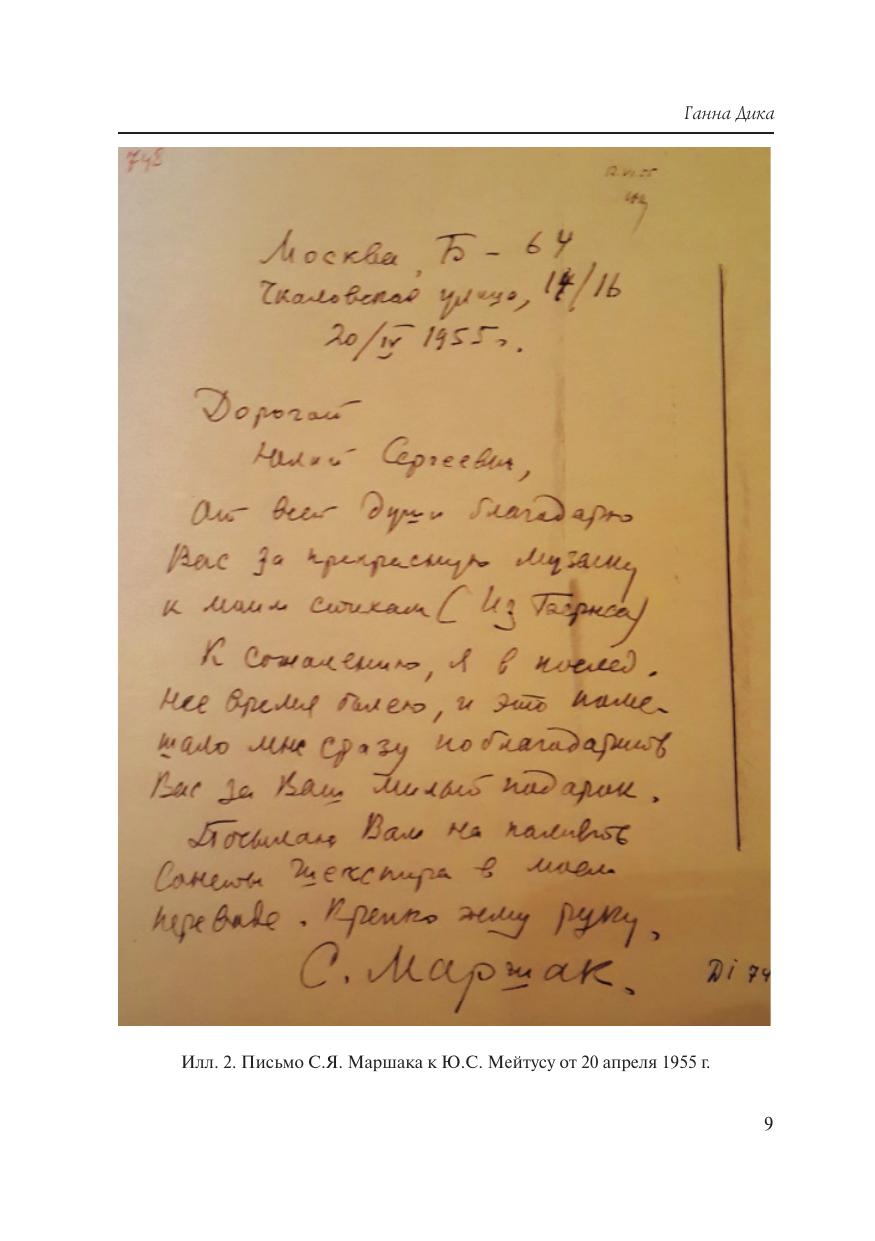 Ганна Дика
748
12.VI.55
Москва, Б – 64
Чкаловская улица, 14/16
20/IV 1955 г.
Дорогой
Юлий Сергеевич,
От всей души благодарю
Вас за прекрасную музыку
к моим стихам (Из Бернса)
К сожалению, я в послед-
нее время болею, и это поме-
шало мне сразу поблагодарить
Вас за Ваш милый подарок.
Посылаю Вам на память
Сонеты Шекспира в моем
переводе. Крепко жму руку.
С. Маршак.
Di 74
Илл. 2. Письмо С.Я. Маршака к Ю.С. Мейтусу от 20 апреля 1955 г.
9